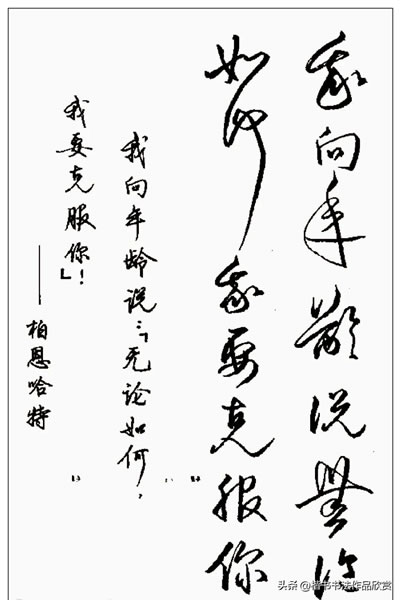 我向年齡说無论
如何我要克服你
我向年龄说：「无论如何，
我要克服你」！
——柏恩哈特
头条 @楷书书法作品欣赏